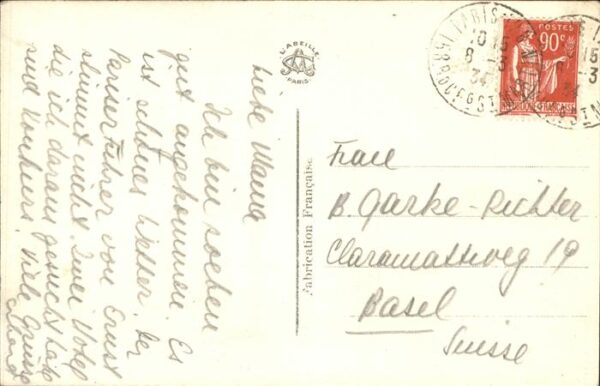 Liebe Mama
Ich bin soeben
gut angekommen. Es
ist schönes Wetter. Der
Pariserführer von Ernst
stimmt nicht. Zwei Hotel
die ich daraus gesucht habe
sind Viele Grüsse
L'ABEILLE
PARIS
Fabrication Française
POSTES
90c
PARIS
10 15
8 -3
34
Frau
B. Garke-Richter
Claramattweg 19
Basel
Suisse